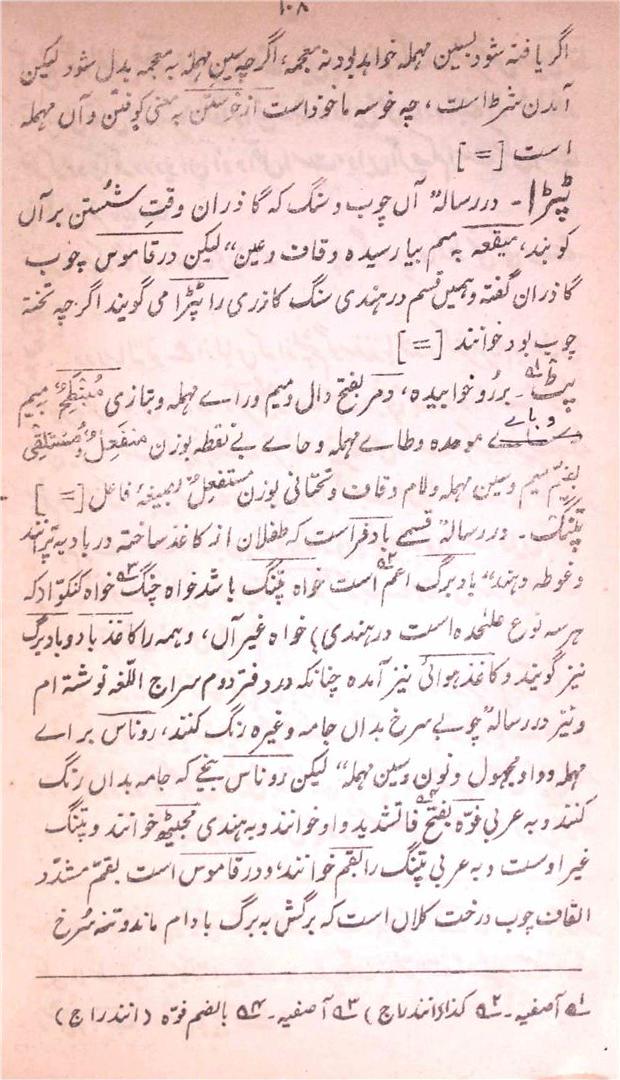 ۱۰۸
اگر یافته شود بسین مهمله خواهد بود نه معجمه، اگرچه سین مهمله به معجمه بدل شود لیکن
آمدن شرط است، چه خوسه ماخوذ است از خوستن به معنی کوفتن و آں مهمله
است [=]
پٹڑا۔ در رسالہ ”آں چوب و سنگ که گاذران وقتِ شُستن بر آں
کوبند، میقعه به میم بیا رسیده و قاف و عین“ لیکن در قاموس چوب
گاذران گفته و همیں قسم در هندی سنگ کاذری را پٹڑا می گویند اگرچه تخته
چوب بود خوانند [=]
پٹ۱؎۔ بر رُو خوابیده، دمر بفتح دال و میم و راے مهمله و بتازی مُنبَطِحٌ بمیم
و باے موحده و طاے مهمله و حاے بے نقطه بوزن منفَعِل و مُستلقِی
بضم میم و سین مهمله و لام و قاف و تحتانی بوزن مستفعِل بصیغهٔ فاعل [=]
پتنگ۔ در رسالہ ”قسمے بادفر است که طفلان از کاغذ ساخته در باد به پرانند
و غوطه دهند“ بادبرگ اعم۲؎ است خواه پتنگ باشد خواه چنگ۳؎ خواه کنکوّا (که
هر سه نوع علٰحده است در هندی) خواه غیر آں، و همه را کاغذ باد و بادبرگ
نیز گویند و کاغذ هوائی نیز آمده چنانکه در دفتر دوم سراج اللغه نوشته ام
و نیز در رسالہ ”چوبے سرخ بداں جامه و غیره رنگ کنند، روناس براے
مهمله و واو مجهول و نون و سین مهمله“ لیکن روناس بیخے که جامه بداں رنگ
کنند و به عربی فوّه۴؎ بفتح فا تشدید واو خوانند و به هندی مجیٹھ خوانند و پتنگ
غیر اوست و به عربی پتنگ را بقم خوانند، و در قاموس است بقم مشدّد
القاف چوب درخت کلاں است که برگش به برگ بادام ماند و تنه سُرخ
۱؎ آصفیه۔ ۲؎ کذا (انندراج) ۳؎ آصفیه۔ ۴؎ بالضم فوّه (انندراج)